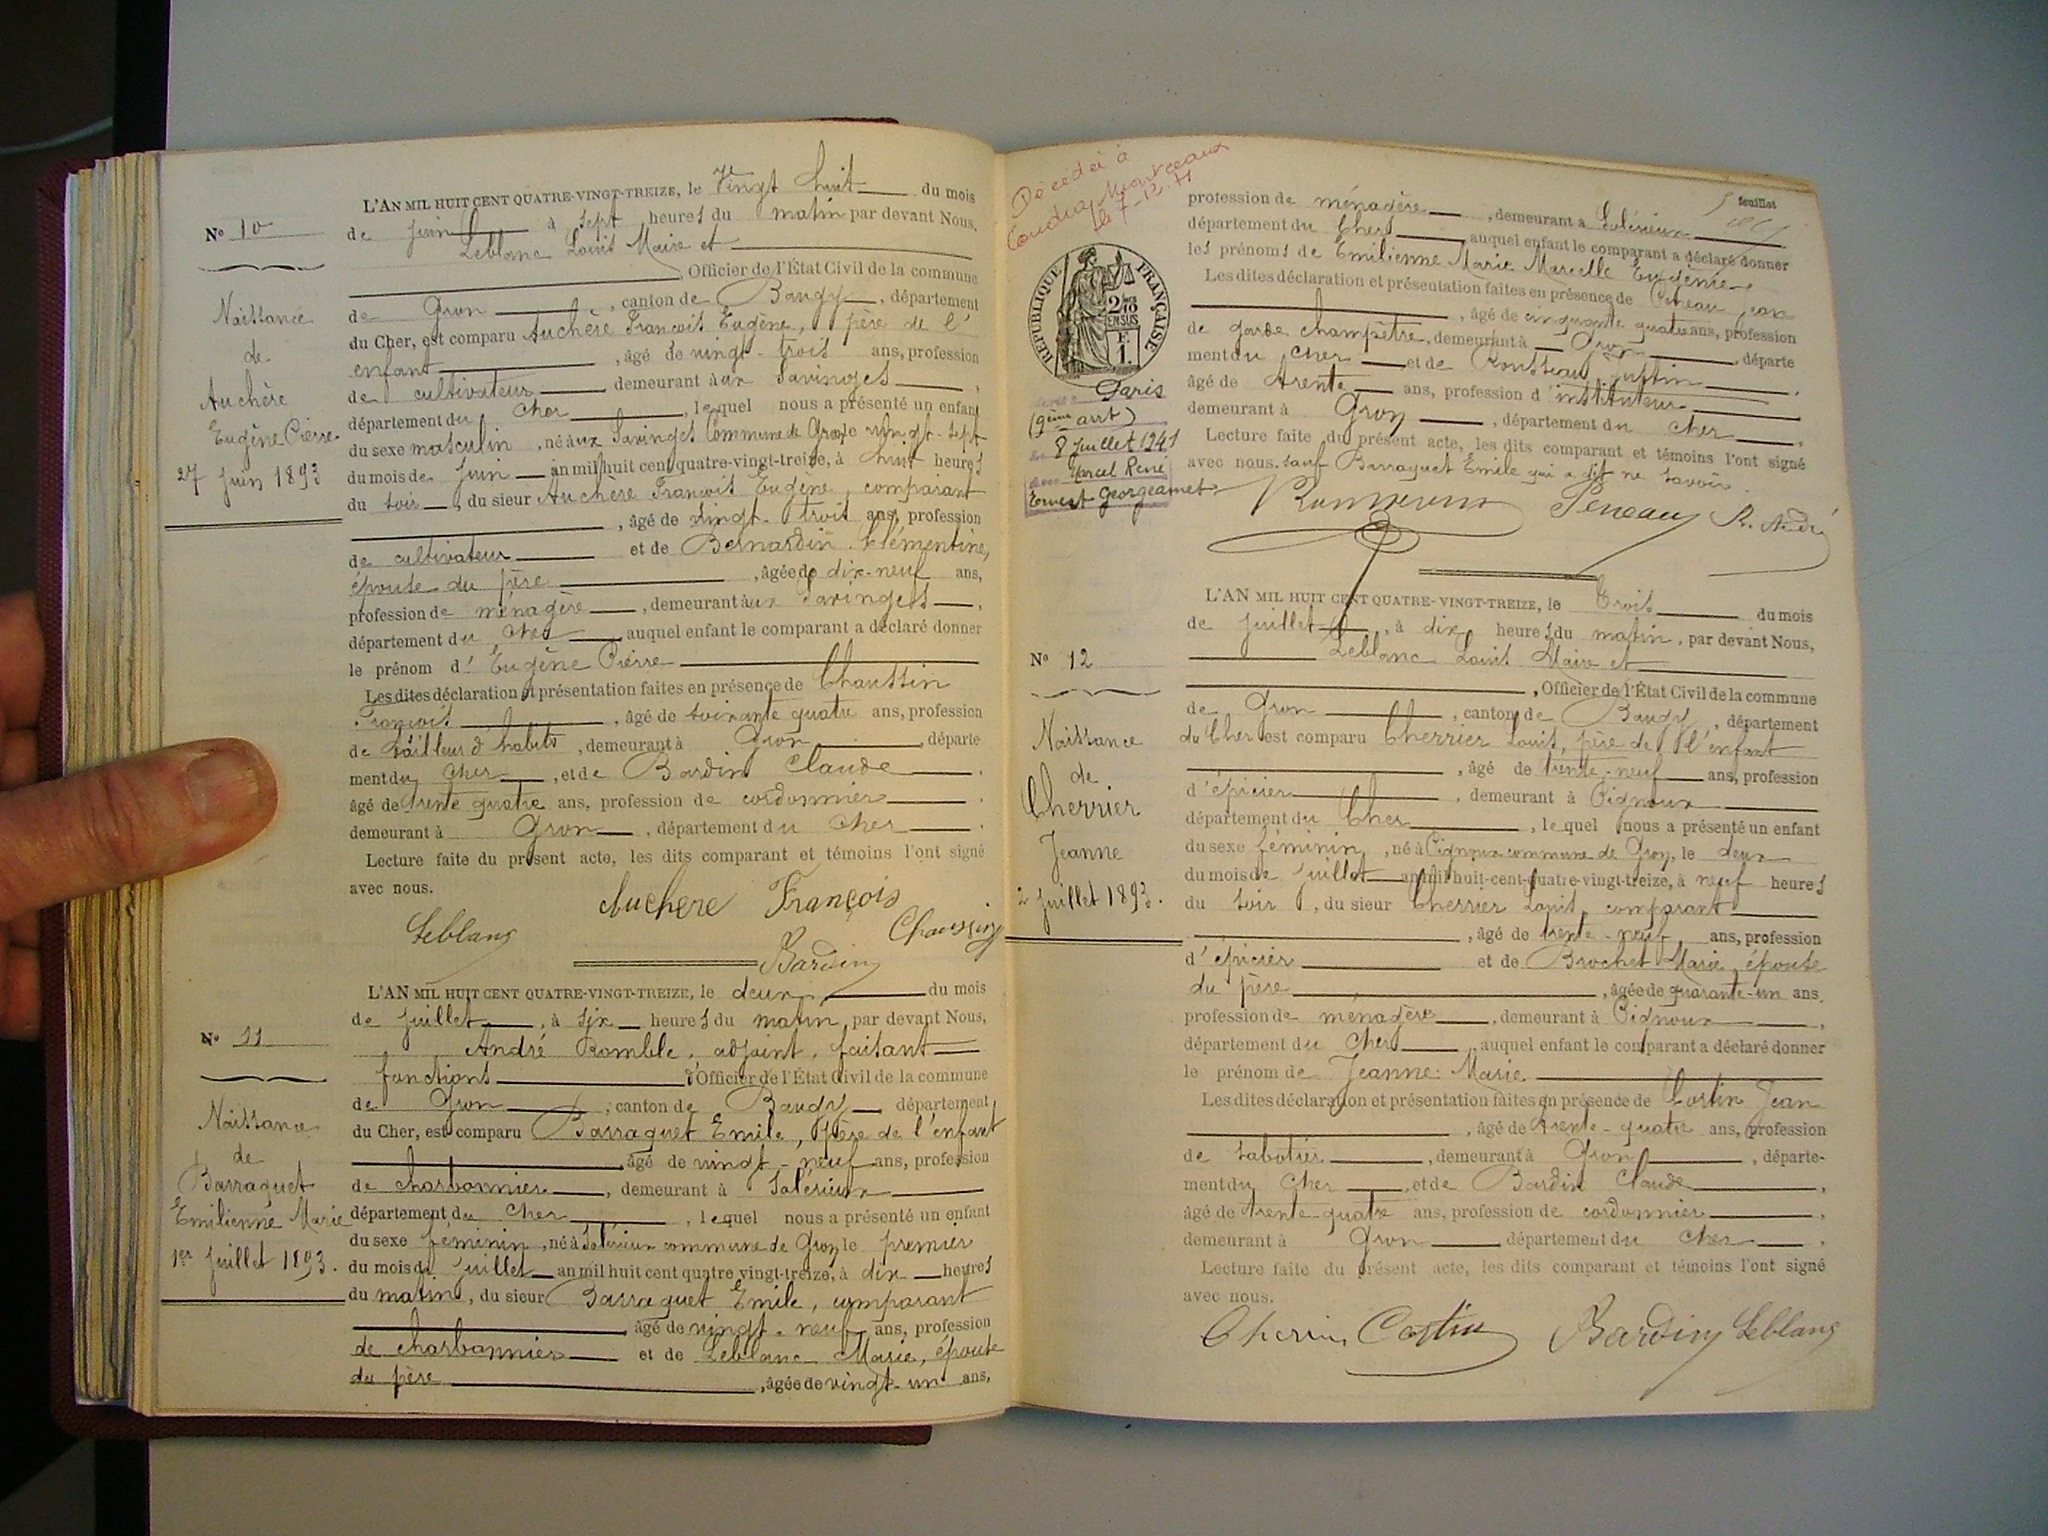 L'AN MIL HUIT CENT QUATRE-VINGT-TREIZE, le Vingt huit du mois
de juin à sept heures du matin par devant Nous,
Leblanc Louis Maire et
Officier de l'État Civil de la commune
de Gron, canton de Baugy, département
du Cher, est comparu Auchère François Eugène, père de l'
enfant, âgé de vingt-trois ans, profession
de cultivateur demeurant aux Savinges,
département du Cher, lequel nous a présenté un enfant
du sexe masculin, né aux Savinges Commune de Gron le vingt-sept
du mois de juin an mil huit cent quatre-vingt-treize, à huit heures
du soir, du sieur Auchère François Eugène, comparant
, âgé de vingt-trois ans, profession
de cultivateur et de Bernardin Clémentine,
épouse du père, âgée de dix-neuf ans,
profession de ménagère, demeurant aux Savinges,
département du Cher, auquel enfant le comparant a déclaré donner
le prénom d' Eugène Pierre
Les dites déclaration et présentation faites en présence de Chaussin
François, âgé de soixante quatre ans, profession
de tailleur d'habits, demeurant à Gron, départe
ment du Cher, et de Bardin Claude,
âgé de trente quatre ans, profession de cordonnier,
demeurant à Gron, département du Cher.
Lecture faite du présent acte, les dits comparant et témoins l'ont signé
avec nous.
Auchère François
Leblanc Chaussin
Bardin
N° 10
Naissance
de
Auchère
Eugène Pierre
27 juin 1893
L'AN MIL HUIT CENT QUATRE-VINGT-TREIZE, le deux du mois
de juillet, à six heures du matin, par devant Nous,
André Romble, adjoint, faisant
fonctions d'Officier de l'État Civil de la commune
de Gron, canton de Baugy, département
du Cher, est comparu Barraquet Emile, père de l'enfant
âgé de vingt-neuf ans, profession
de charbonnier, demeurant à Solérieux
département du Cher, lequel nous a présenté un enfant
du sexe féminin, né à Solérieux commune de Gron, le premier
du mois de juillet an mil huit cent quatre vingt-treize, à dix heures
du matin, du sieur Barraquet Emile, comparant
âgé de vingt-neuf ans, profession
de charbonnier et de Leblanc Marie, épouse
du père, âgée de vingt-un ans,
N° 11
Naissance
de
Barraquet
Emilienne Marie
1er juillet 1893.
5e feuillet
profession de ménagère, demeurant à Solérieux
département du Cher, auquel enfant le comparant a déclaré donner
les prénoms de Emilienne Marie Marcelle Eugénie
Les dites déclaration et présentation faites en présence de Peneau Jean
, âgé de cinquante quatre ans, profession
de garde champêtre, demeurant à Gron, départe
ment du Cher et de Rousseau Justin,
âgé de trente ans, profession d'instituteur
demeurant à Gron, département du Cher,
Lecture faite du présent acte, les dits comparant et témoins l'ont signé
avec nous. sauf Barraquet Emile qui a dit ne savoir.
Peneau R. André
Décédée à
le 7-12-71
RÉPUBLIQUE FRANÇAISE
2/10es
EN SUS
F.
1.
Paris
(9ème arrt)
8 Juillet 1941
Marcel René
Ernest Georgeamet
L'AN MIL HUIT CENT QUATRE-VINGT-TREIZE, le trois du mois
de juillet, à dix heures du matin, par devant Nous,
Leblanc Louis Maire et
, Officier de l'État Civil de la commune
de Gron, canton de Baugy, département
du Cher est comparu Cherrier Louis, père de l'enfant
, âgé de trente-neuf ans, profession
d'épicier, demeurant à Pignoux
département du Cher, lequel nous a présenté un enfant
du sexe féminin, né à Pignoux commune de Gron, le deux
du mois de juillet an mil huit-cent-quatre-vingt-treize, à neuf heures
du soir, du sieur Cherrier Louis, comparant
, âgé de trente-neuf ans, profession
d'épicier et de Brochet Marie, épouse
du père, âgée de quarante-un ans.
profession de ménagère, demeurant à Pignoux,
département du Cher, auquel enfant le comparant a déclaré donner
le prénom de Jeanne Marie
Les dites déclaration et présentation faites en présence de Costin Jean
, âgé de trente-quatre ans, profession
de sabotier, demeurant à Gron, départe-
ment du Cher, et de Bardin Claude,
âgé de trente-quatre ans, profession de cordonnier,
demeurant à Gron département du Cher.
Lecture faite du présent acte, les dits comparant et témoins l'ont signé
avec nous.
Costin Bardin Leblanc
N° 12
Naissance
de
Cherrier
Jeanne
2 juillet 1893.